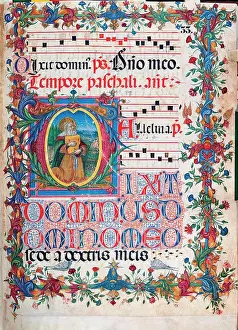 33
Dixit domin. ps. Dño meo.
Tempore paschali. añt.
Alleluia. p.
DIXIT
DOMINUS D
OMINO MEO
sede a dextris meis